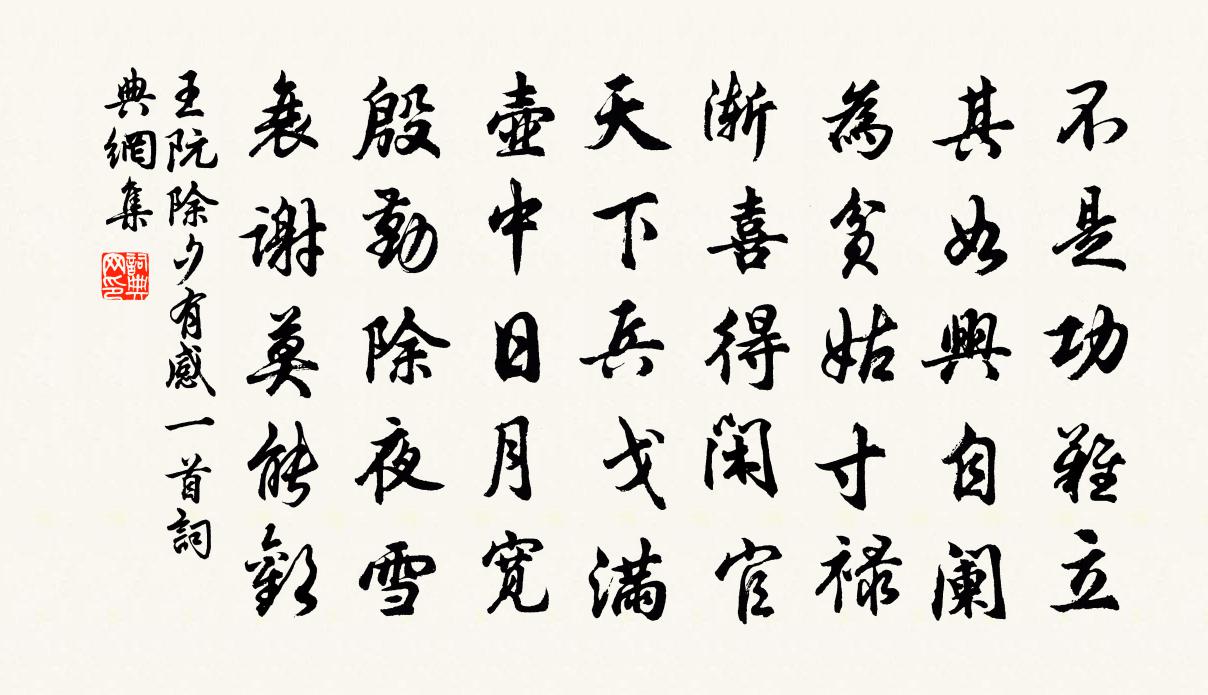 不是功難立
其如興自闌
為貧姑寸祿
漸喜得閑官
天下兵戈滿
壺中日月寬
殷勤除夜雪
衰謝莫能歡
王阮除夕有感一首詞
典網集
詞典网印